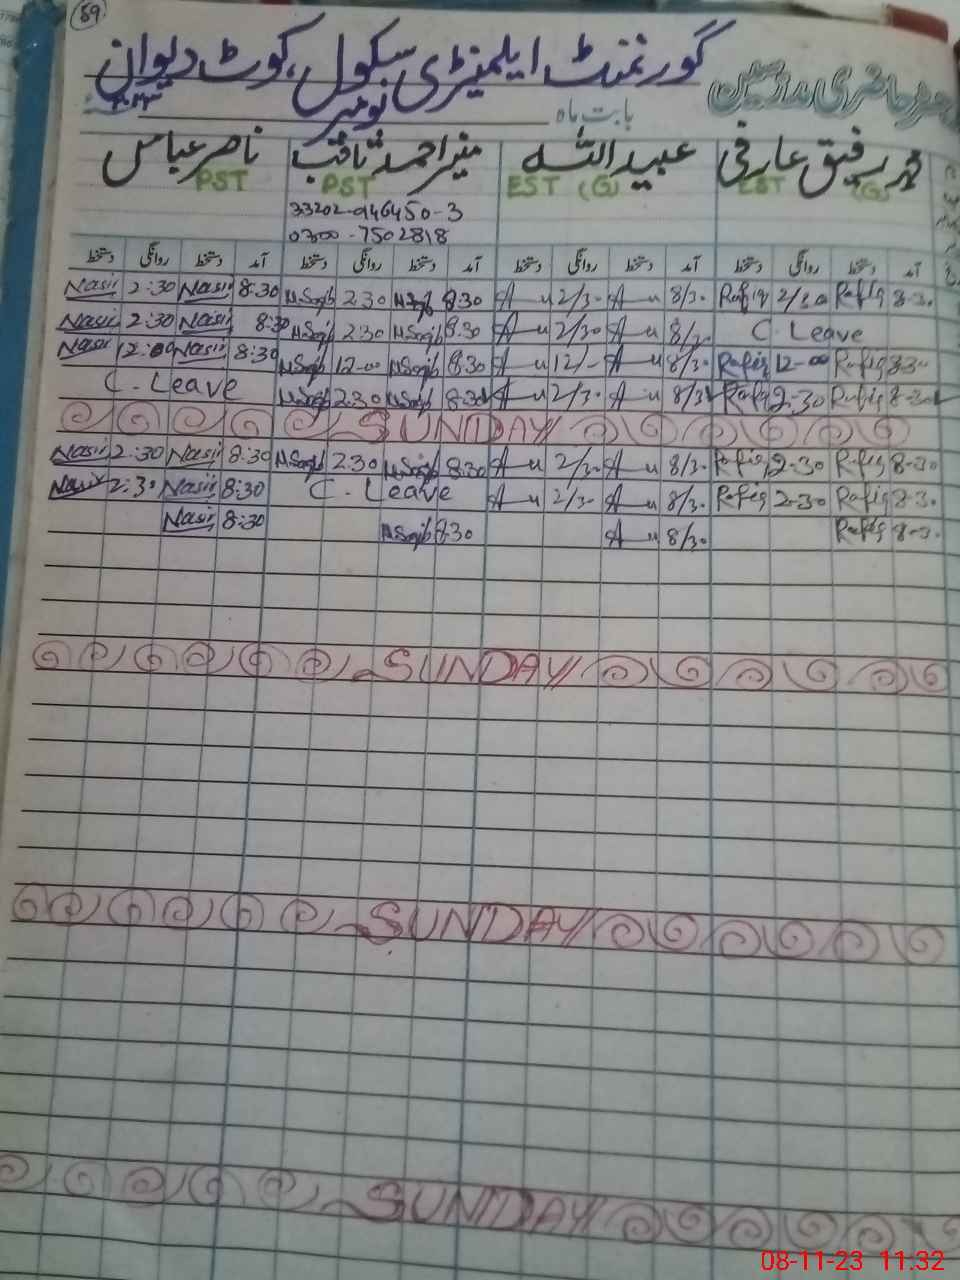 59
گورنمنٹ ایلمنٹری سکول، کوٹ دیوان
حاضری مدرسین
بابت ماہ نومبر
محمد رفیق عارفی عبیداللہ منیر احمد ثاقب ناصر عباس
EST (G) EST (G) PST PST
33202-946450-3
0300-7502818
آمد دستخط روانگی دستخط آمد دستخط روانگی دستخط آمد دستخط روانگی دستخط آمد دستخط روانگی دستخط
Nasir 2:30 Nasir 8:30 M.Saqib 2:30 M.Saqib 8:30 2/30 8/30 Rafiq 2/30 Rafiq 8-30
Nasir 2:30 Nasir 8:30 M.Saqib 2:30 M.Saqib 8:30 2/30 8/30 C. Leave
Nasir 12:00 Nasir 8:30 M.Saqib 12-00 M.Saqib 8:30 12/- 8/30 Rafiq 12-00 Rafiq 8-30
C. Leave M.Saqib 2:30 M.Saqib 8:30 2/30 8/30 Rafiq 2-30 Rafiq 8-30
SUNDAY
Nasir 2:30 Nasir 8:30 M.Saqib 2:30 M.Saqib 8:30 2/30 8/30 Rafiq 2-30 Rafiq 8-30
Nasir 2:30 Nasir 8:30 C. Leave 2/30 8/30 Rafiq 2-30 Rafiq 8-30
Nasir 8:30 M.Saqib 8:30 8/30 Rafiq 8-30
SUNDAY
SUNDAY
SUNDAY
08-11-23 11:32